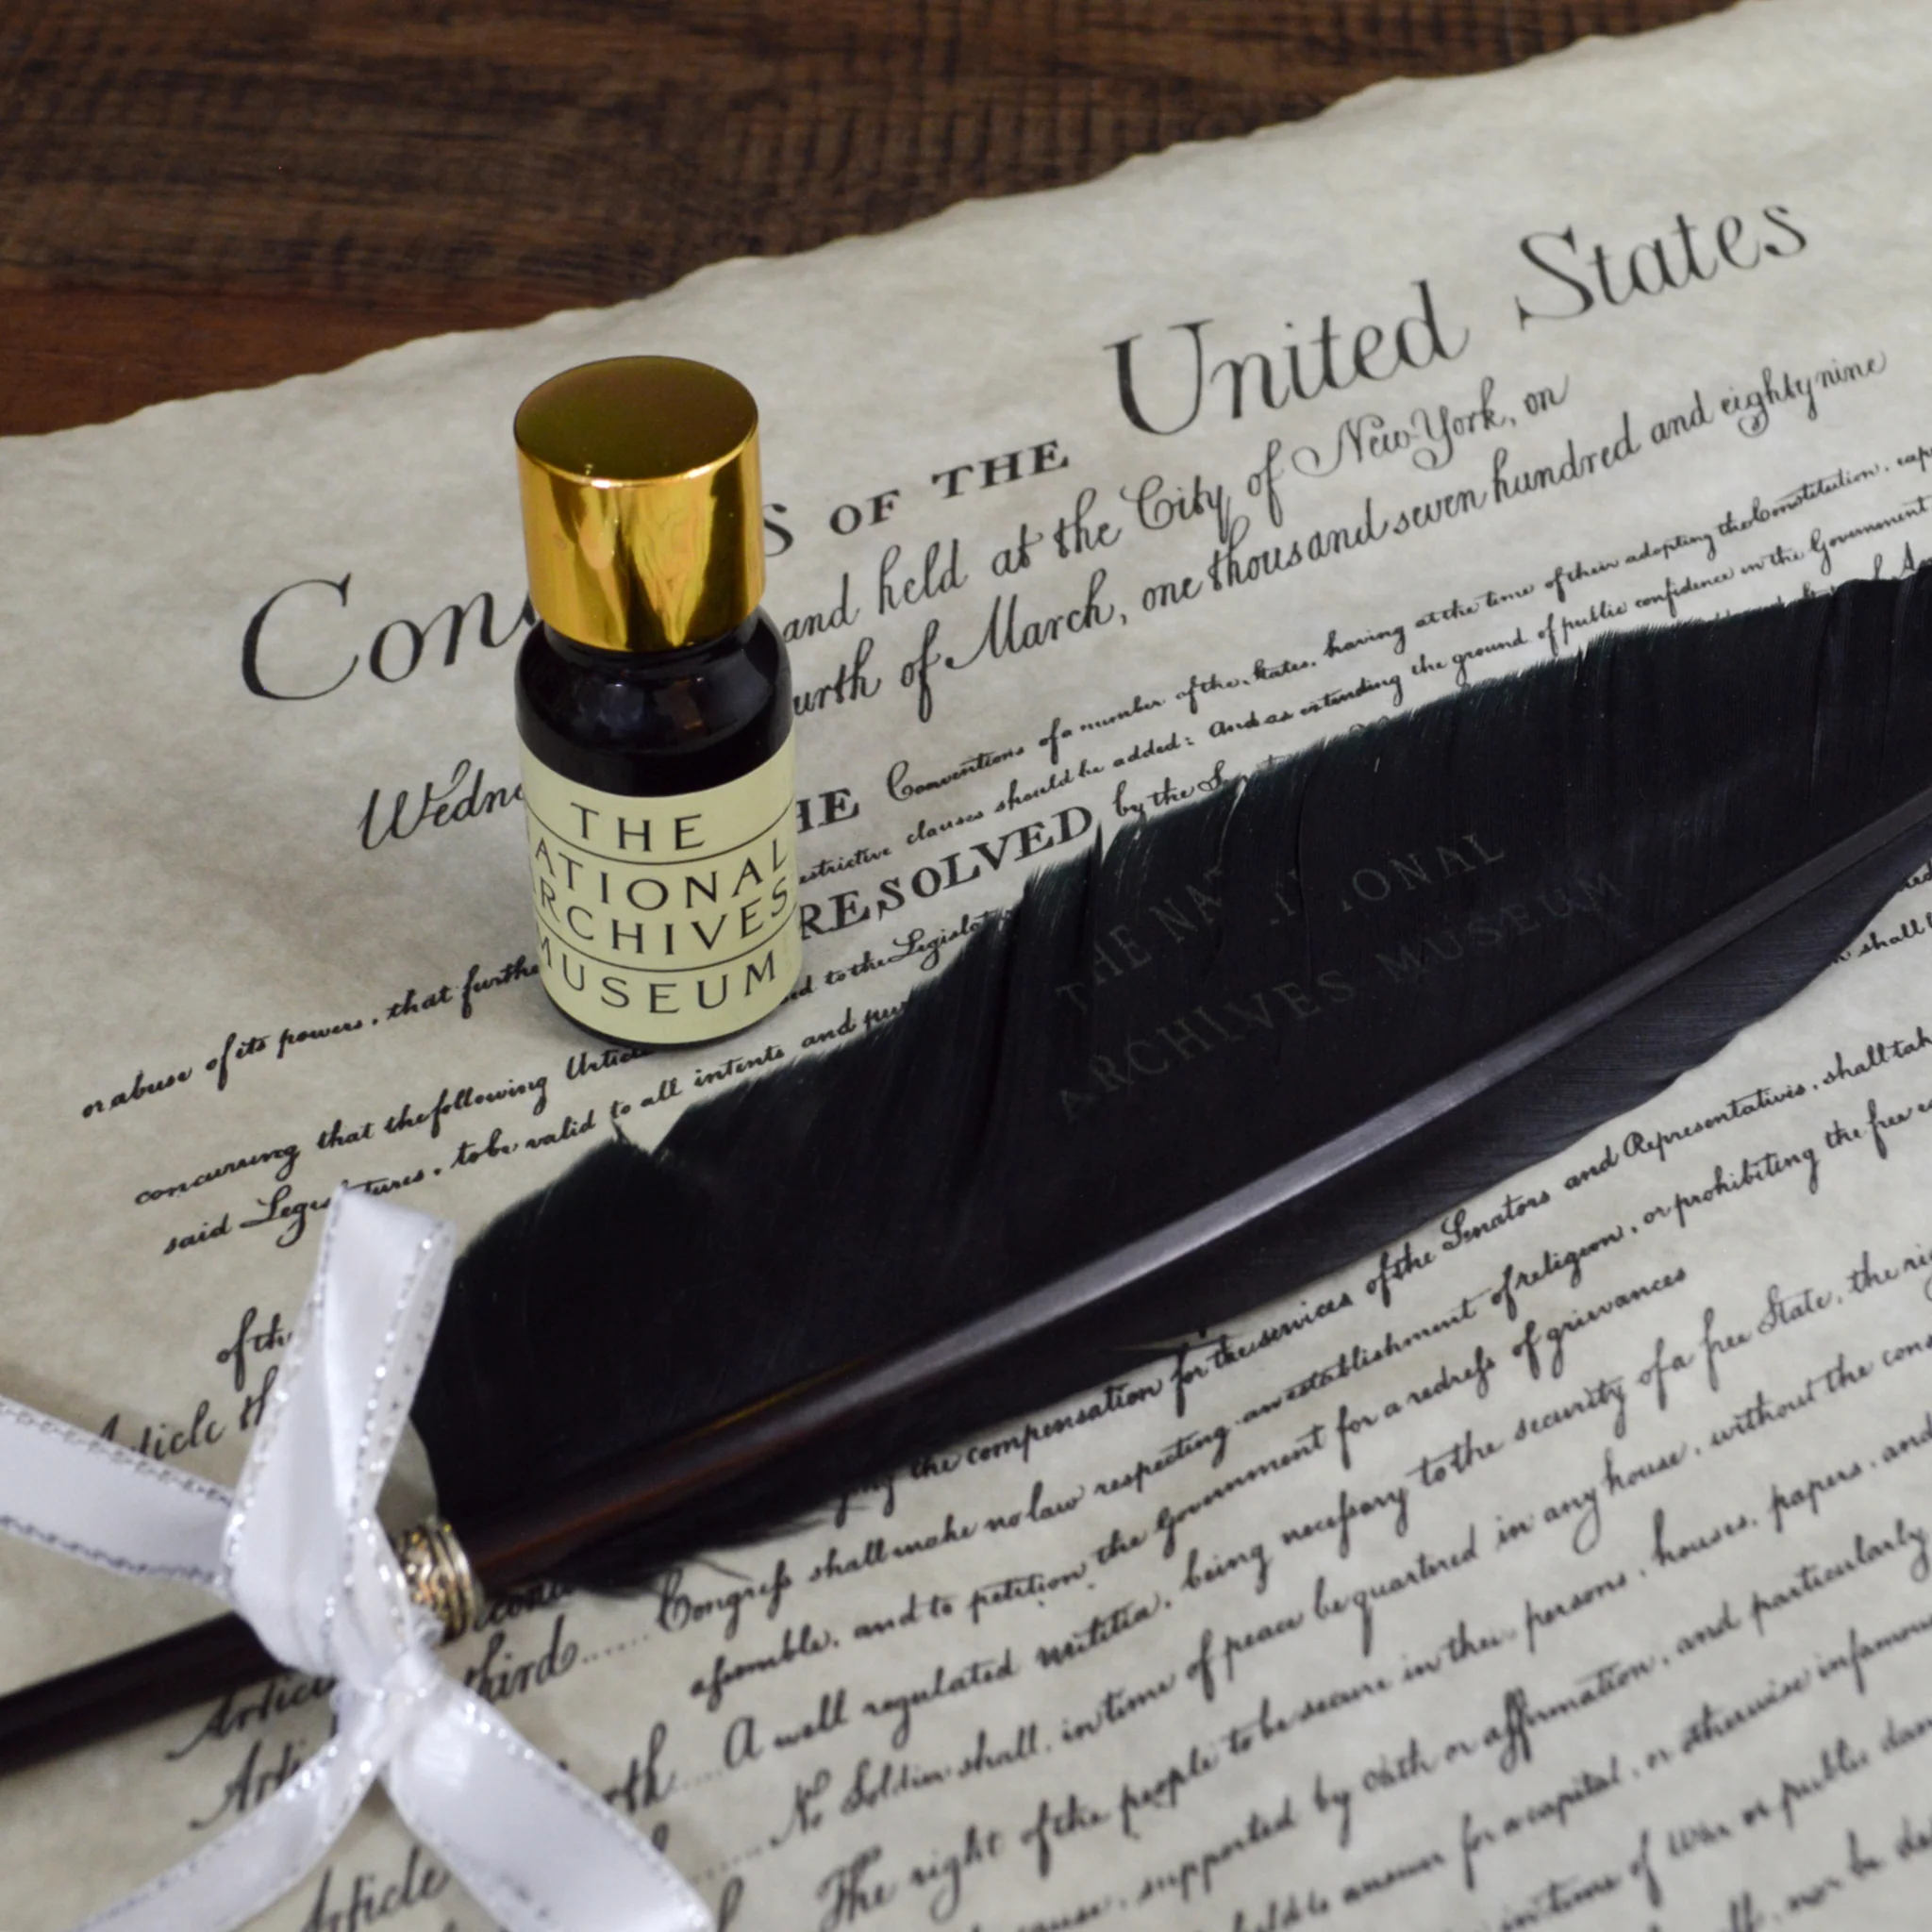 Con S OF THE United States
and held at the City of New York, on
Wedne urth of March, one thousand seven hundred and eighty nine
HE Conventions of a number of the States, having at the time of their adopting the Constitution, exp
or abuse of its powers, that furthe estrictive clauses should be added: And as extending the ground of public confidence in the Government
RESOLVED by the Se
concurring that the following Article ed to the Legisla
said Legislatures, to be valid to all intents and pur
THE
ATIONAL
RCHIVES
MUSEUM
THE NATIONAL
ARCHIVES MUSEUM
of the
Article th
the compensation for the services of the Senators and Representatives, shall tak
third...... Congreſs shall make no law respecting an establishment of religion, or prohibiting the free
aſsemble, and to petition the Government for a redreſs of grievances
A well regulated militia, being neceſsary to the security of a free State, the rig
No Soldier shall, in time of peace be quartered in any house, without the cons
The right of the people to be secure in their persons, houses, papers, and
supported by Oath or affirmation, and particularly
to answer for a capital, or otherwise infamou
in time of War or public dan
nor be
Article